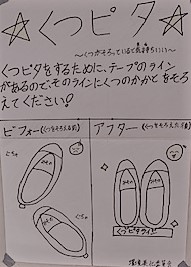 ☆くつピタ☆
〜くつがそろっていると気持ちいい〜
くつピタをするために、テープのライン
があるので、そのラインにくつのかかとをそろ
えてください!
ビフォー(くつをそろえる前)
アフター(くつをそろえた後)
ぐちゃ
ぐちゃ
くつピタライン
環境美化委員会